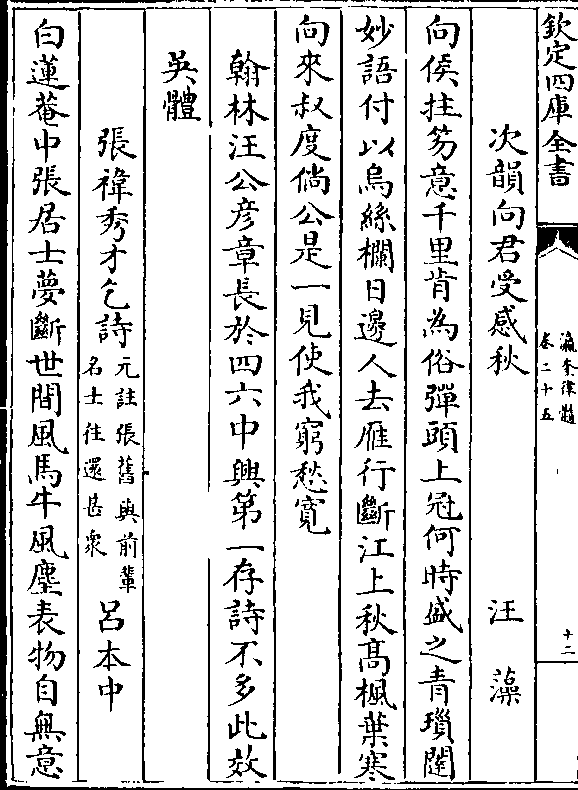 欽定四庫全書
瀛奎律髓
卷二十五
十二
次韻向君受感秋　汪藻
向侯拄笏意千里肯為俗彈頭上冠何時盛之青瑣闥
妙語付以烏絲欄日邊人去雁行斷江上秋髙楓葉寒
向來叔度倘公是一見使我窮愁寛
翰林汪公彦章長於四六中興第一存詩不多此效
吳體
張禕秀才乞詩元註張舊與前輩名士徃還甚衆　呂本中
白蓮菴中張居士夢斷世間風馬牛風塵表物自無意